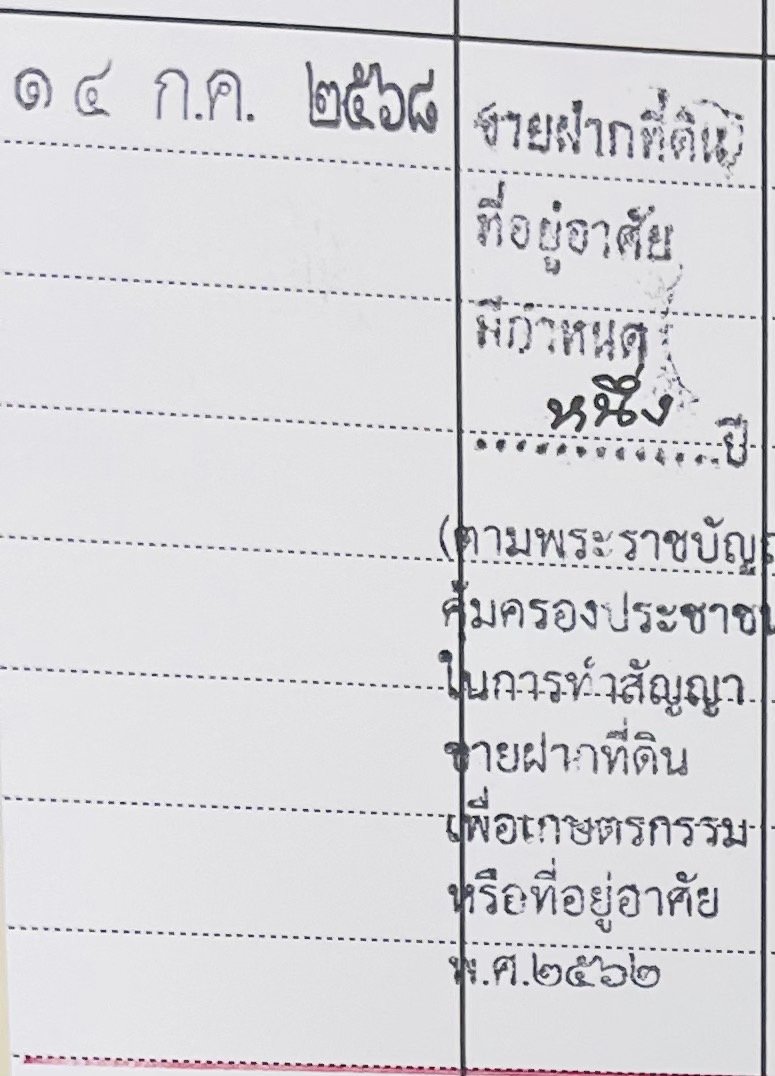 ๑๔ ก.ค. ๒๕๖๘
ขายฝากที่ดิน
ที่อยู่อาศัย
มีกำหนด
หนึ่ง
..............ปี
(ตามพระราชบัญญ
คุ้มครองประชาชน
ในการทำสัญญา
ขายฝากที่ดิน
เพื่อเกษตรกรรม
หรือที่อยู่อาศัย
พ.ศ.๒๕๖๒